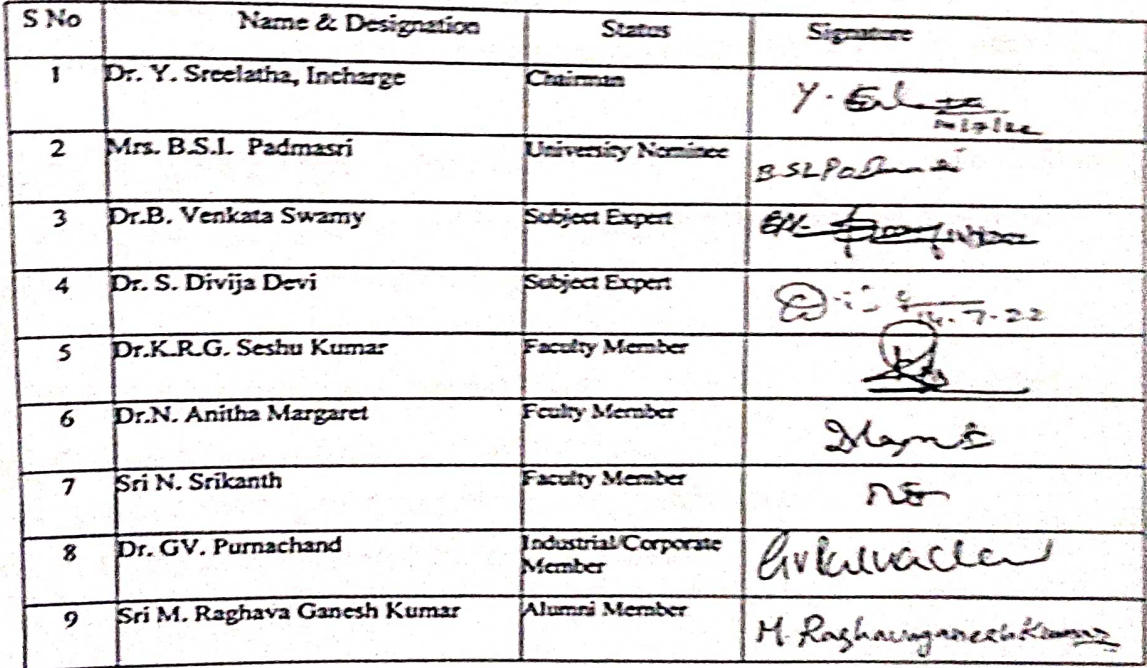 S No Name & Designation Status Signature
1 Dr. Y. Sreelatha, Incharge Chairman Y.
2 Mrs. B.S.L. Padmasri University Nominee B S L Padmasri
3 Dr.B. Venkata Swamy Subject Expert
4 Dr. S. Divija Devi Subject Expert 14.7.22
5 Dr.K.R.G. Seshu Kumar Faculty Member
6 Dr.N. Anitha Margaret Fculty Member
7 Sri N. Srikanth Faculty Member
8 Dr. GV. Purnachand Industrial/Corporate
Member
9 Sri M. Raghava Ganesh Kumar Alumni Member M. Raghavaganesh Kumar